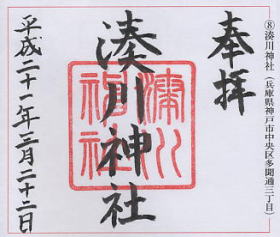 ⑧湊川神社（兵庫県神戸市中央区多聞通三丁目）
奉拝
湊川神社
平成二十一年三月二十二日